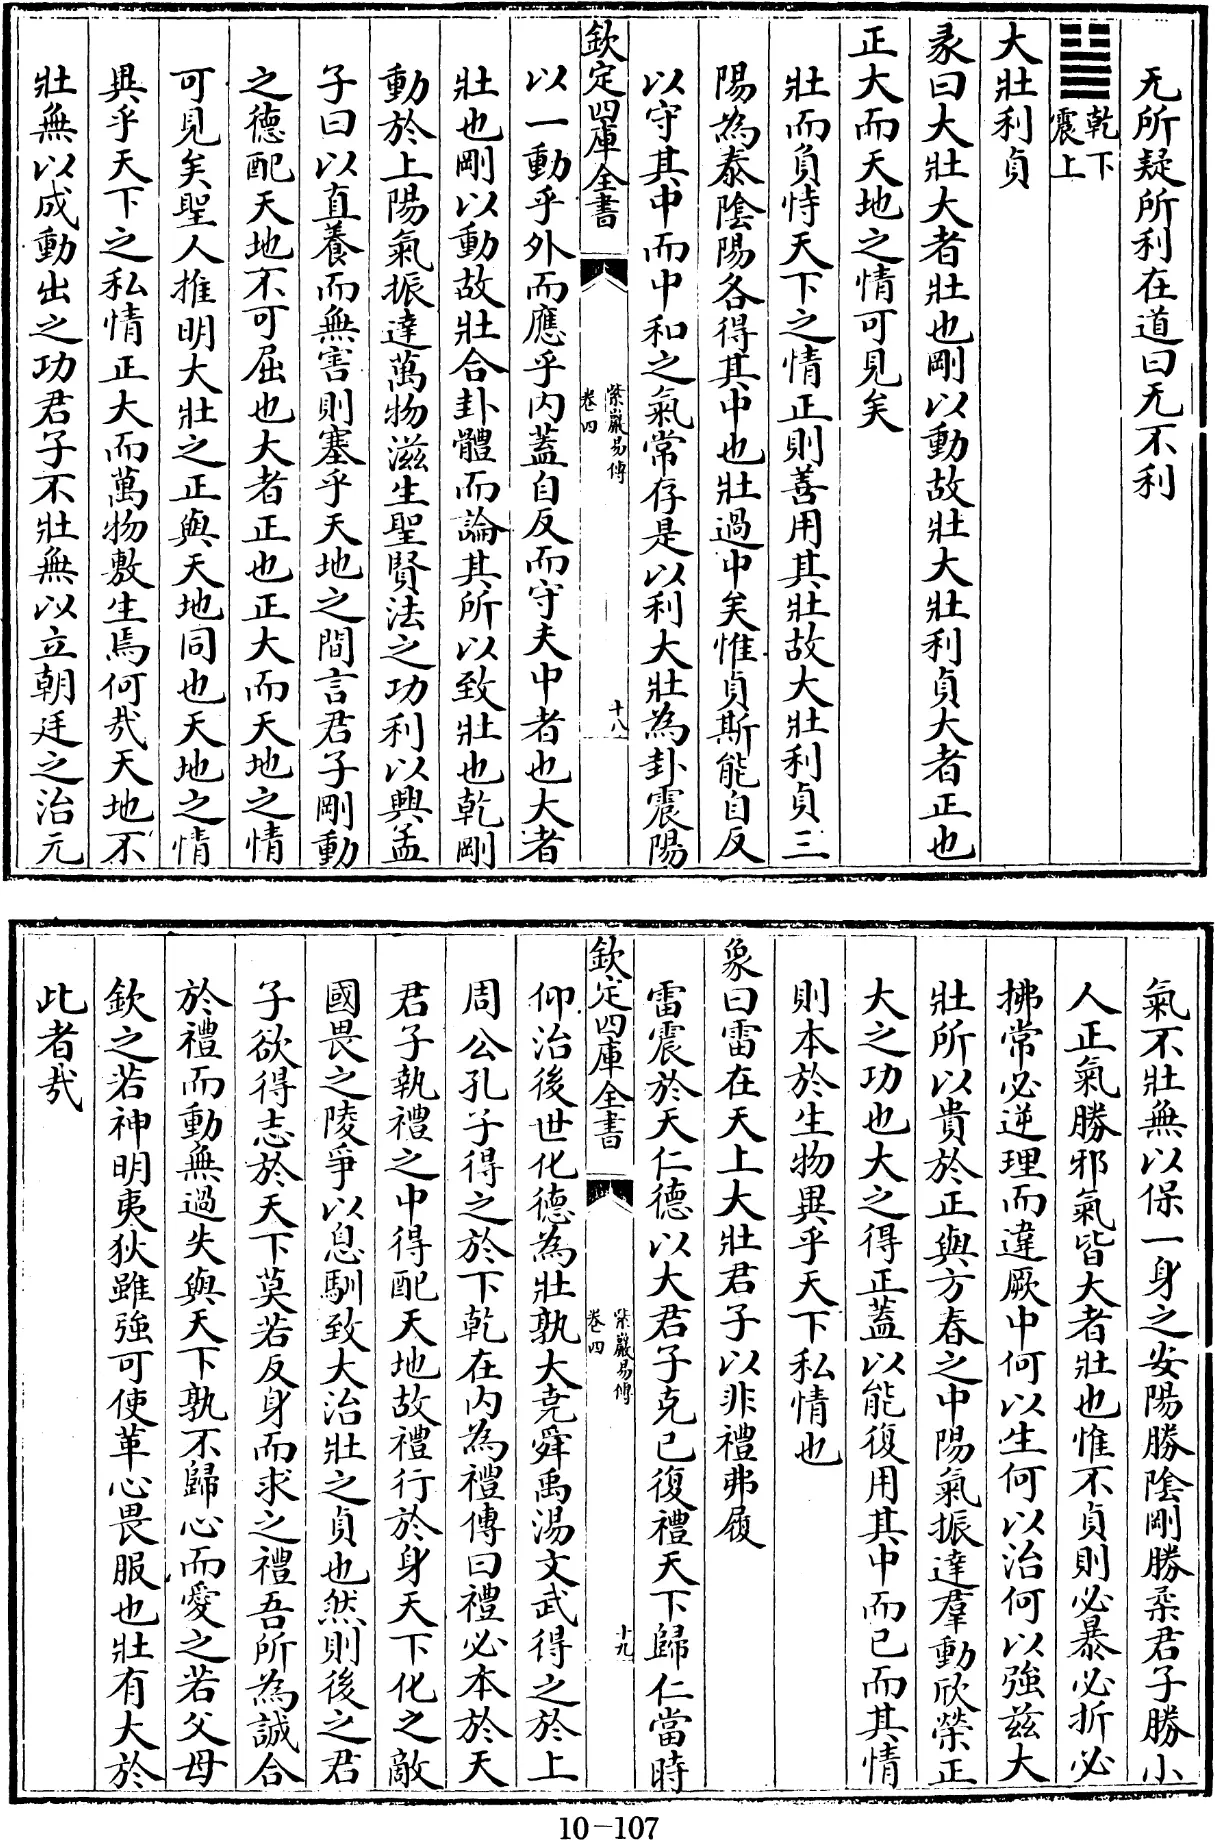 无所疑所利在道曰无不利
䷡乾下震上
大壯利貞
彖曰大壯大者壯也剛以動故壯大壯利貞大者正也
正大而天地之情可見矣
壯而負恃天下之情正則善用其壯故大壯利貞三
陽為泰陰陽各得其中也壯過中矣惟貞斯能自反
以守其中而中和之氣常存是以利大壯為卦震陽
欽定四庫全書
紫巖易傳
卷四
十八
以一動乎外而應乎内蓋自反而守夫中者也大者
壯也剛以動故壯合卦體而論其所以致壯也乾剛
動於上陽氣振達萬物滋生聖賢法之功利以興孟
子曰以直養而無害則塞乎天地之間言君子剛動
之德配天地不可屈也大者正也正大而天地之情
可見矣聖人推明大壯之正與天地同也天地之情
異乎天下之私情正大而萬物敷生焉何㢤天地不
壯無以成動出之功君子不壯無以立朝廷之治元
氣不壯無以保一身之安陽勝陰剛勝柔君子勝小
人正氣勝邪氣皆大者壯也惟不貞則必暴必折必
拂常必逆理而違厥中何以生何以治何以強兹大
壯所以貴於正與方春之中陽氣振達羣動欣榮正
大之功也大之得正蓋以能復用其中而已而其情
則本於生物異乎天下私情也
象曰雷在天上大壯君子以非禮弗履
雷震於天仁德以大君子克己復禮天下歸仁當時
欽定四庫全書
紫巖易傳
卷四
十九
仰治後世化德為壯孰大堯舜禹湯文武得之於上
周公孔子得之於下乾在内為禮傳曰禮必本於天
君子執禮之中得配天地故禮行於身天下化之敵
國畏之陵爭以息馴致大治壯之貞也然則後之君
子欲得志於天下莫若反身而求之禮吾所為誠合
於禮而動無過失與天下孰不歸心而愛之若父母
欽之若神明夷狄雖強可使革心畏服也壯有大於
此者㢤
10-107